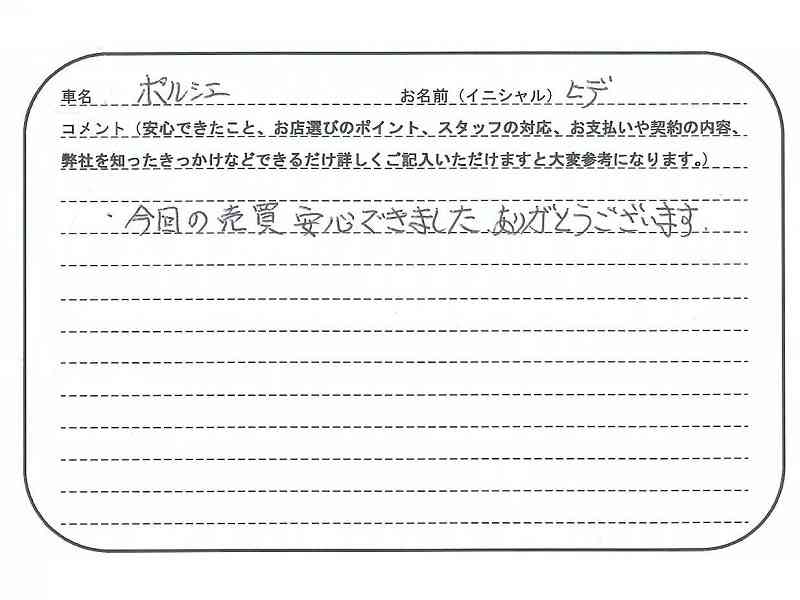 車名 ポルシェ お名前（イニシャル） ヒデ
コメント（安心できたこと、お店選びのポイント、スタッフの対応、お支払いや契約の内容、
弊社を知ったきっかけなどできるだけ詳しくご記入いただけますと大変参考になります。）
・今回の売買安心できました ありがとうございます.